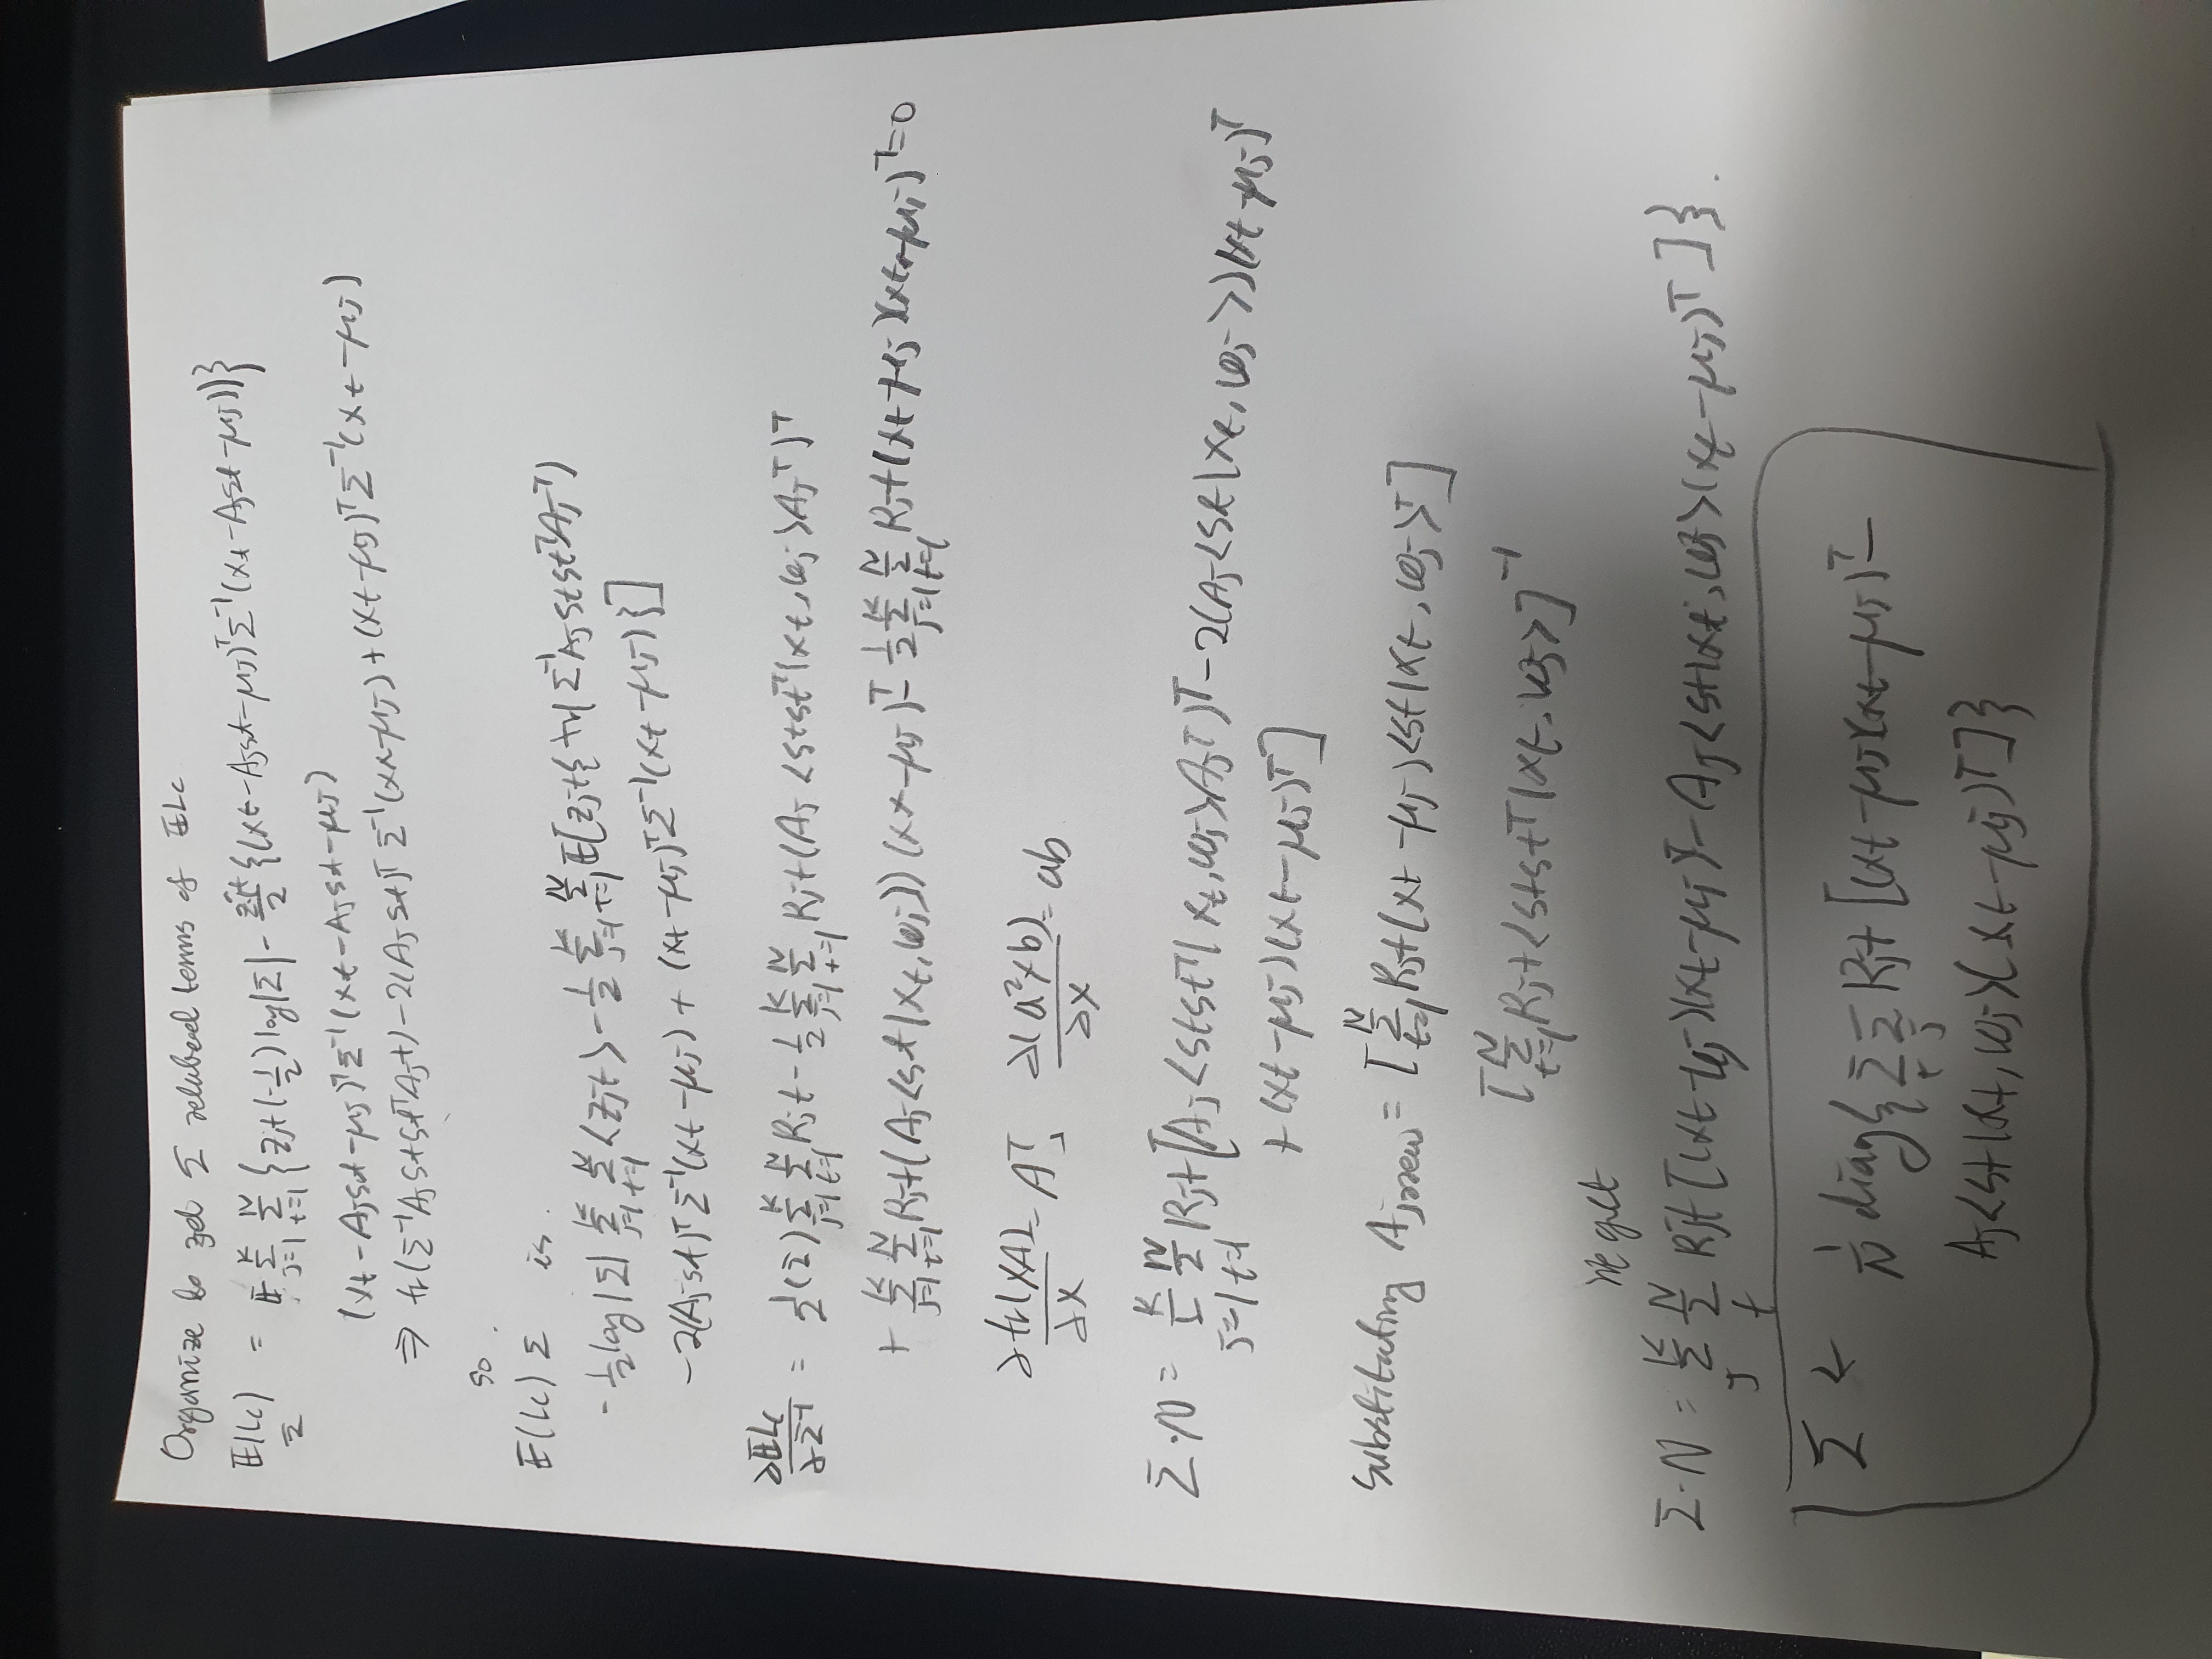 Organize to get Σ related terms of 𝔼Lc
𝔼(Lc)_Σ = 𝔼 Σ_{j=1}^{K} Σ_{t=1}^{N} { Zjt(-1/2) log|Σ| - Zjt/2 {(xt - Ajst - μj)^T Σ^-1 (xt - Ajst - μj))}
(xt - Ajst - μj)^T Σ^-1 (xt - Ajst - μj)
⇒ tr(Σ^-1 Aj st st^T Aj^t) - 2(Aj st)^T Σ^-1 (xt - μj) + (xt - μj)^T Σ^-1 (xt - μj)
so.
𝔼(Lc)Σ is.
- 1/2 log|Σ| Σ_{j=1}^{K} Σ_{t=1}^{N} <Zjt> - 1/2 Σ_{j=1}^{K} Σ_{t=1}^{N} 𝔼[Zjt{tr(Σ^-1 Aj st st^T Aj^T)
- 2(Aj st)^T Σ^-1 (xt - μj) + (xt - μj)^T Σ^-1 (xt - μj)}]
∂𝔼Lc/∂Σ^-1 = 1/2 (Σ) Σ_{j=1}^{K} Σ_{t=1}^{N} Rjt - 1/2 Σ_{j=1}^{K} Σ_{t=1}^{N} Rjt(Aj <st st^T|xt, ωj> Aj^T)^T
+ Σ_{j=1}^{K} Σ_{t=1}^{N} Rjt(Aj <st|xt, ωj>) (xt - μj)^T - 1/2 Σ_{j=1}^{K} Σ_{t=1}^{N} Rjt(xt - μj)(xt - μj)^T = 0
∂tr(XA)/∂X = A^T, ∂(a^2xb)/∂X = ab
Σ·N = Σ_{j=1}^{K} Σ_{t=1}^{N} Rjt[Aj <st st^T|xt, ωj> Aj^T)^T - 2(Aj <st|xt, ωj>)(xt - μj)^T
+ (xt - μj)(xt - μj)^T]
Substituting Ajnew = [Σ_{t=1}^{N} Rjt(xt - μj) <st|xt, ωj>^T]
[Σ_{t=1}^{N} Rjt <st st^T|xt, ωj>]^-1
We get
Σ·N = Σ_{j}^{K} Σ_{t}^{N} Rjt [(xt - μj)(xt - μj)^T - Aj <st|xt, ωj> (xt - μj)^T]}.
Σ ← 1/N diag{Σ_t Σ_j Rjt [(xt - μj)(xt - μj)^T -
Aj <st|xt, ωj> (xt - μj)^T]}